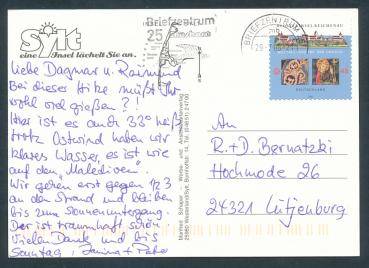 Sylt
eine Insel lächelt Sie an.
Liebe Dagmar u. Raimund
Bei dieses Hitze müßt Ihr
wohl viel gießen?!
Hier ist es auch 33° heiß
trotz Ostwind haben wir
klares Wasser, es ist wie
auf den „Malediven".
Wir gehen erst gegen 1/2 3
an den Strand und bleiben
bis zum Sonnenuntergang.
Der ist traumhaft schön
Vielen Dank und bis
Sonntag,
Manfred Schaper - Werbe- und Ansichtskartenverlag
25980 Westerland/Sylt
Briefzentrum
25
BRIEFZENTRUM
DEUTSCHLAND
An
R.+D. Bernatzki
Hochmode 26
24321 Lütjenburg